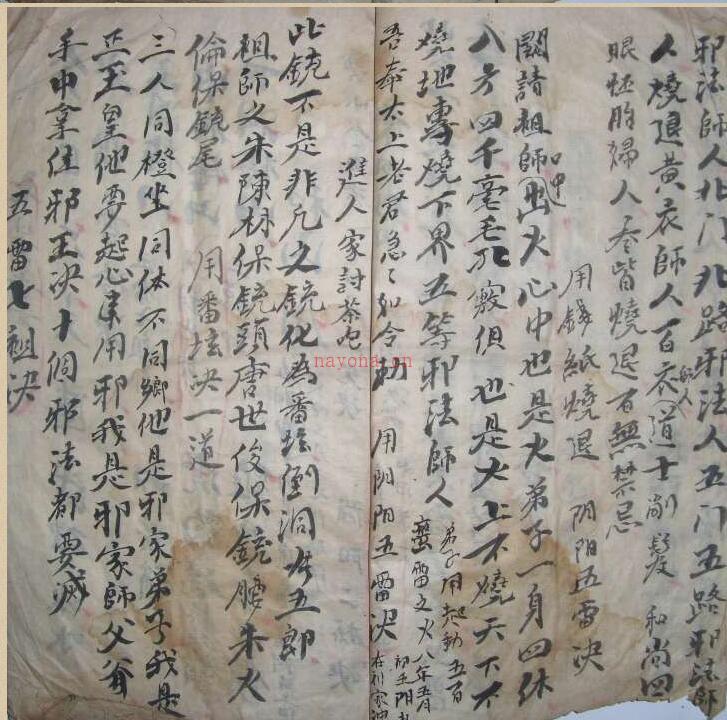 邪法師人北门北路邪法人五门五路邪法師
人燒退黄衣師人百衣道士剃髮和尚四
眼怀胎婦人叁皆燒退百無禁忌
用錢紙燒退 阴阳五雷决
闕請祖師口中出火心中也是火弟子一身四体
八方四千毫毛孔竅俱也是火上不燒天下不
燒地專燒下界五等邪法師人
弟子用起動五百
蛮雷之火八年五月
吾奉太上老君急々如令勑 用阴阳五雷决
進人家討茶吃
此銃不是非凡之銃化為番坛倒洞张五郎
祖師之朱陳林保銃頭唐世俊保銃腰朱火
倫保銃尾 用番坛决一道
三人同橙坐同体不同鄉他是邪家弟子我是
正玉皇他要起心来用邪我是邪家師父爷
手中拿住邪王决十個邪法都要滅
五雷七祖决
nayona.cn